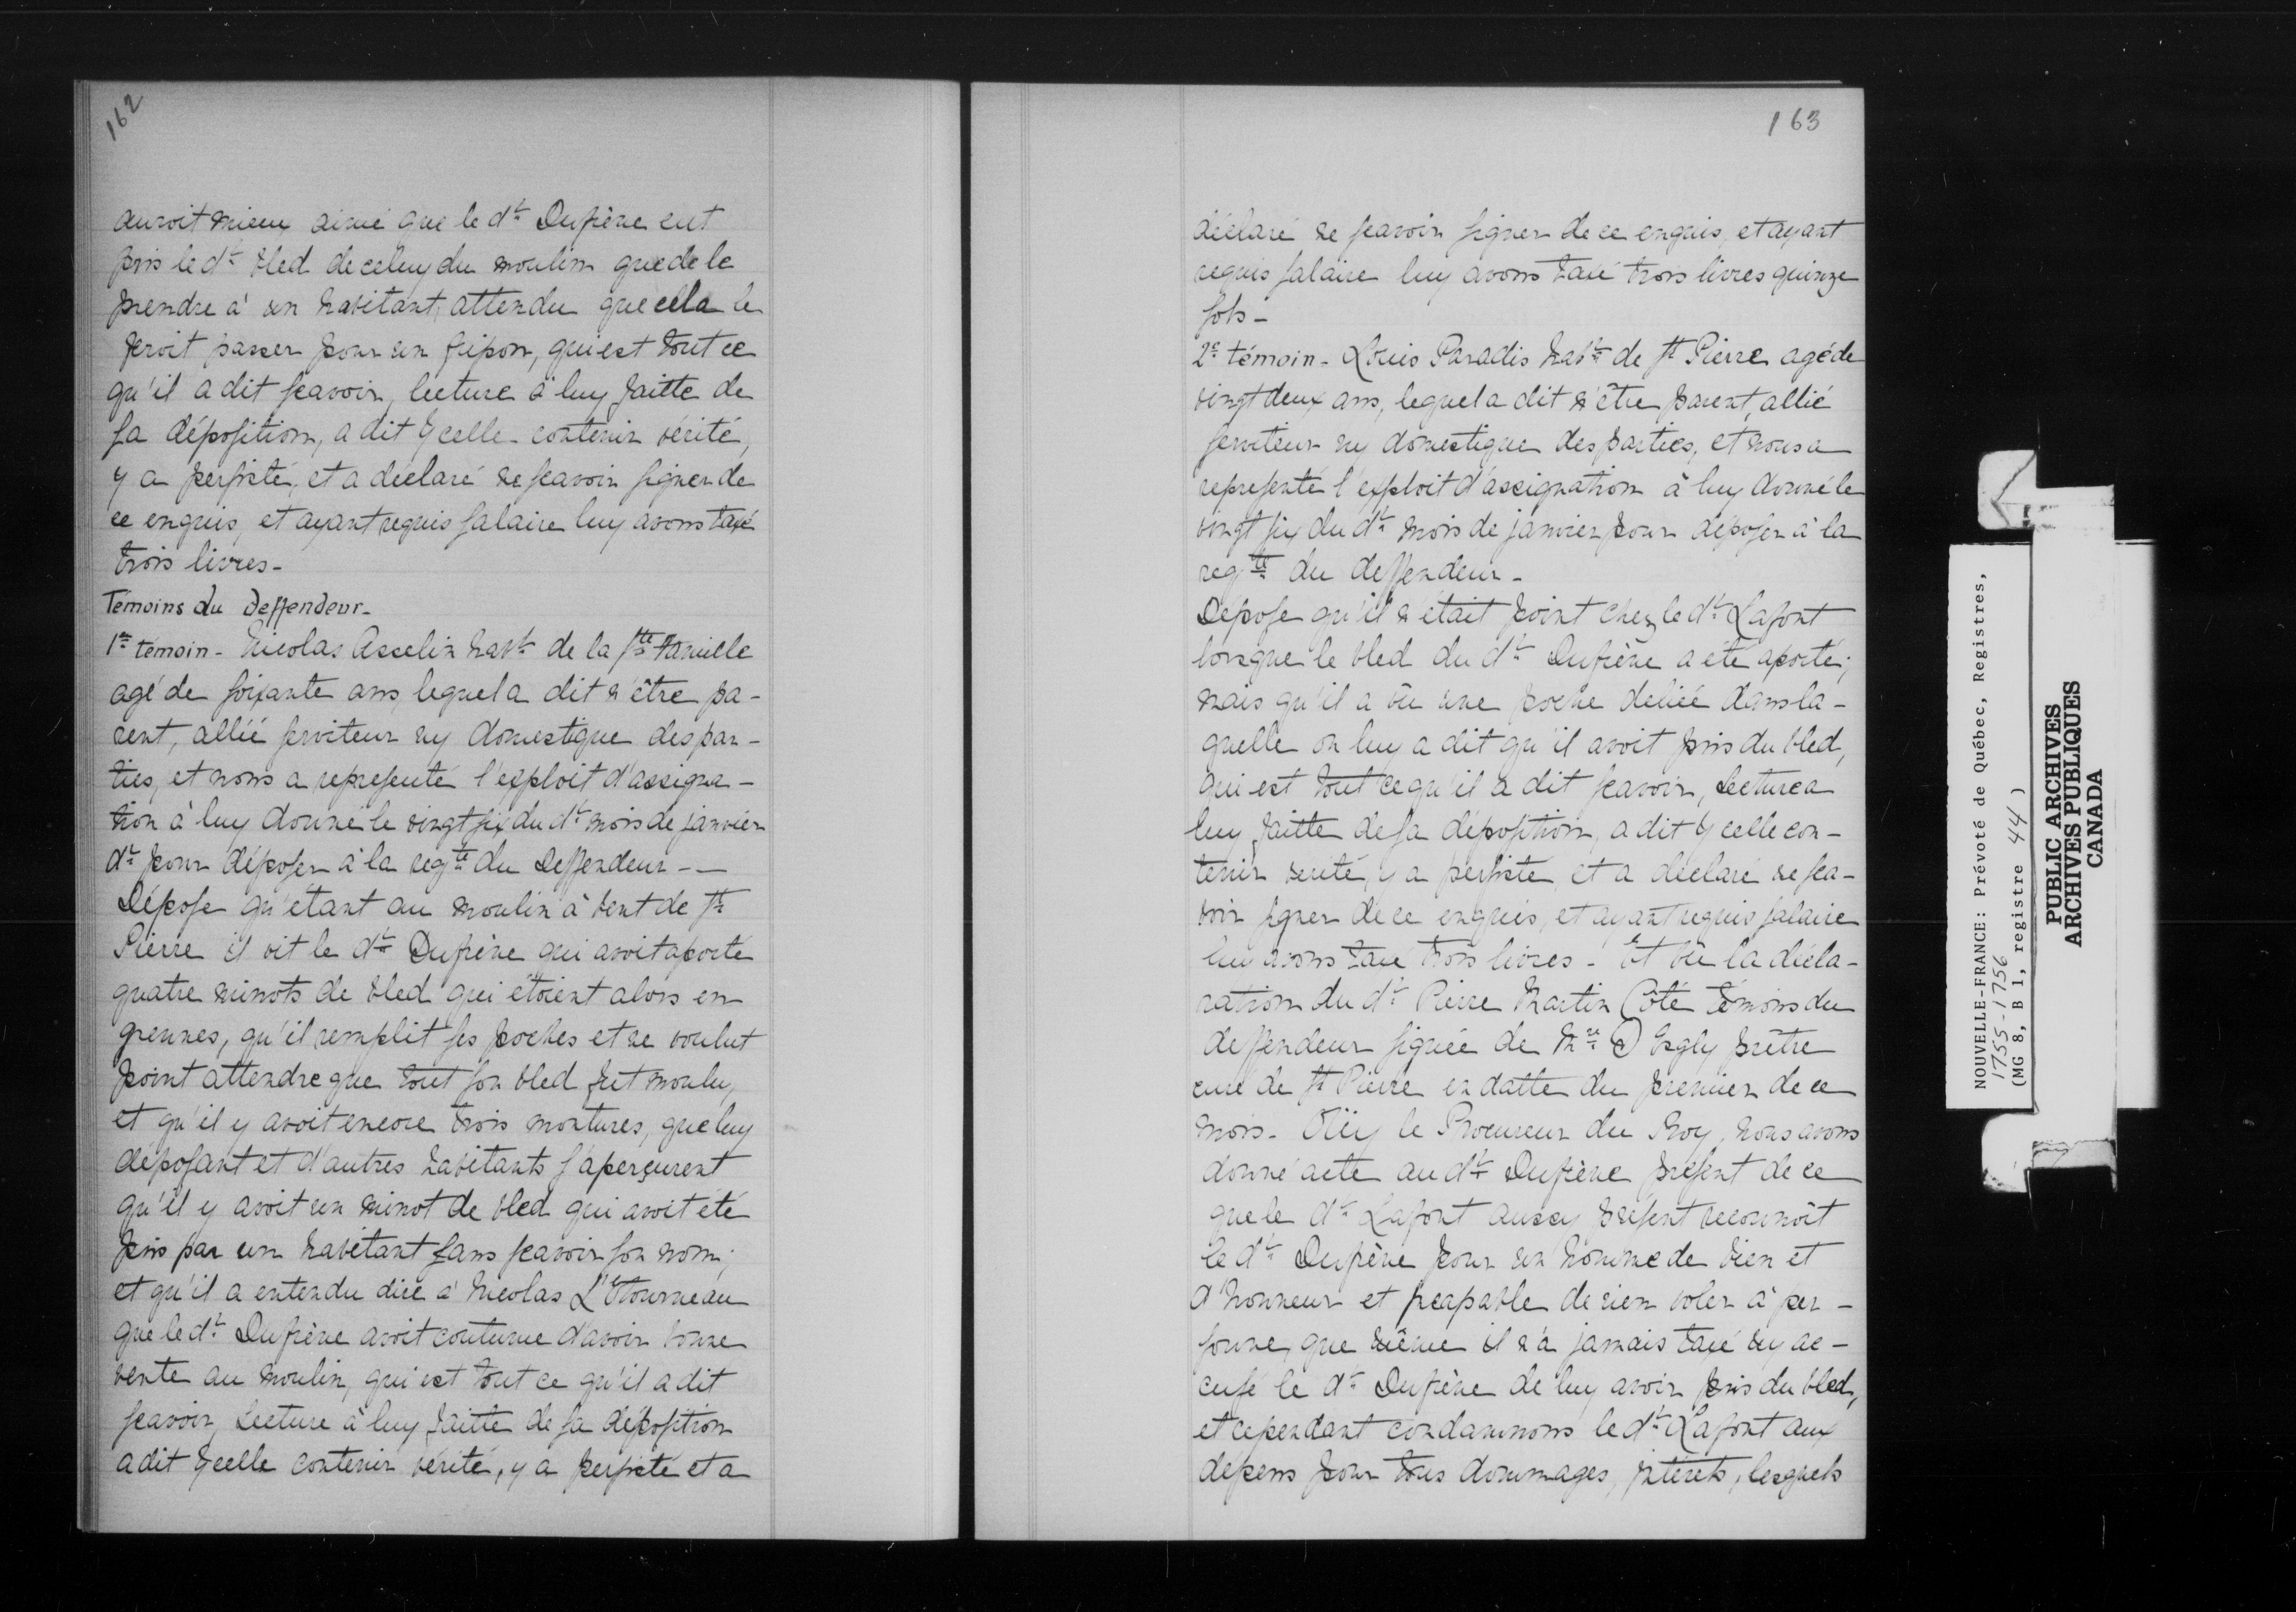 162
auroit mieux aimé que le dt Dufrêne eut
pris le dt bled de celuy du moulin que de le
prendre à un habitant, attendu que cella le
feroit passer pour un fripon, qui est tout ce
qu'il a dit sçavoir, lecture à luy faitte de
sa déposition, a dit ycelle contenir vérité,
y a persisté, et a déclaré ne sçavoir signer de
ce enquis, et ayant requis salaire luy avons taxé
trois livres -
Témoins du Deffendeur -
1er témoin - Nicolas Asselin habt de la Ste Famille
agé de soixante ans, lequel a dit n'être pa-
rent, allié serviteur ny domestique des par-
ties, et nous a representé l'exploit d'assigna-
tion à luy donné le vingt six du dt mois de janvier
dr pour déposer à la reqte du Deffendeur - -
Dépose qu'étant au moulin à vent de St
Pierre il vit le dt Dufrêne qui avoit aporté
quatre minots de bled qui étoient alors en
grennes, qu'il remplit ses poches et ne voulut
point attendre que tout son bled fut moulu,
et qu'il y avoit encore trois moutures, que luy
déposant et d'autres habitants s'aperçurent
qu'il y avoit un minot de bled qui avoit été
pris par un habitant sans sçavoir son nom;
et qu'il a entendu dire à Nicolas L'Etourneau
que le dt Dufrêne avoit coutume d'avoir bonne
vente au moulin, qui est tout ce qu'il a dit
sçavoir, Lecture à luy faitte de sa déposition
a dit ycelle contenir vérité, y a persisté et a
163
déclaré ne sçavoir signer de ce enquis, et ayant
requis salaire luy avons taxé trois livres quinze
sols -
2e témoin - Louis Paradis habt de St Pierre agé de
vingt deux ans, lequel a dit n'être parent, allié
serviteur ny domestique des parties, et nous a
representé l'exploit d'assignation à luy donné le
vingt six du dt mois de janvier pour déposer à la
reqte du deffendeur -
Dépose qu'il n'était point chez le dt Lafont
lorsque le bled du dt Dufrêne a été aporté;
mais qu'il a vû une poche deliée dans la-
quelle on luy a dit qu'il avoit pris du bled,
qui est tout ce qu'il a dit sçavoir, Lecture a
luy faitte de sa déposition, a dit ycelle con-
tenir verité, y a persisté, et a déclaré ne sça-
voir signer de ce enquis, et ayant requis salaire
luy avons taxé trois livres - Et vû la décla-
ration du dt Pierre Martin Côté témoins du
deffendeur signée de Mre D'Esgly prêtre
curé de St Pierre en datte du premier de ce
mois - Oüy le Procureur du Roy, nous avons
donné acte au dt Dufrêne présent de ce
que le dt Lafont aussy présent reconnoît
le dt Dufrêne pour un homme de bien et
d'honneur et incapable de rien voler à per-
sonne, que même il n'a jamais taxé ny ac-
cusé le dt Dufrêne de luy avoir pris du bled,
et cependant condamnons le dt Lafont aux
dépens pour tous dommages, intérets, lesquels
NOUVELLE-FRANCE: Prévoté de Québec, Registres,
1755-1756
(MG 8, B 1, registre 44)
PUBLIC ARCHIVES
ARCHIVES PUBLIQUES
CANADA